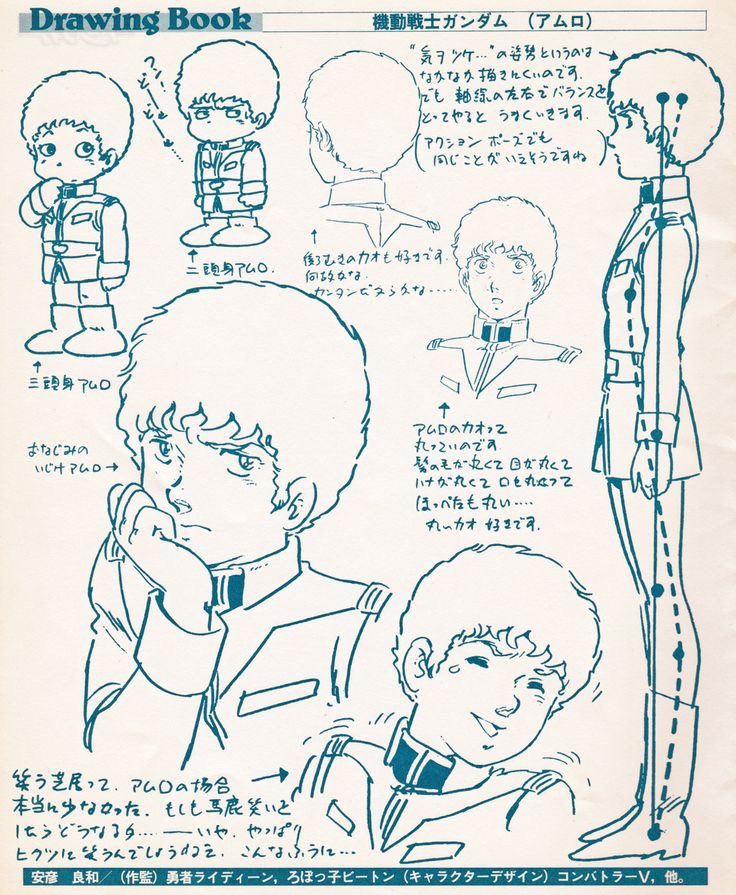 Drawing Book
機動戦士ガンダム (アムロ)
"気ヲツケ…"の姿勢というのは
なかなか描きにくいのです。
でも 軸線の左右でバランスを
とってやると うまくいきます。
(アクション ポーズでも
同じことがいえそうですね)
フン!
二頭身アムロ.
三頭身アムロ
後ろむきのカオも好きです。
何故かな.
カンタンだからかな……
おなじみの
いじけアムロ→
アムロのカオって
丸っこいのです。
髪の毛が丸くて 目が丸くて
ハナが丸くて 口も丸くって
ほっぺたも丸い….
丸いカオ 好きです.
笑う芝居って、アムロの場合
本当に少なかった. もしも馬鹿笑いを
したらどうなるか…. ──いや、やっぱり
ヒクツに笑うんでしょうねェ、こんなふうに…
安彦 良和/(作監)勇者ライディーン,ろぼっ子ビートン(キャラクターデザイン)コンバトラーV,他。